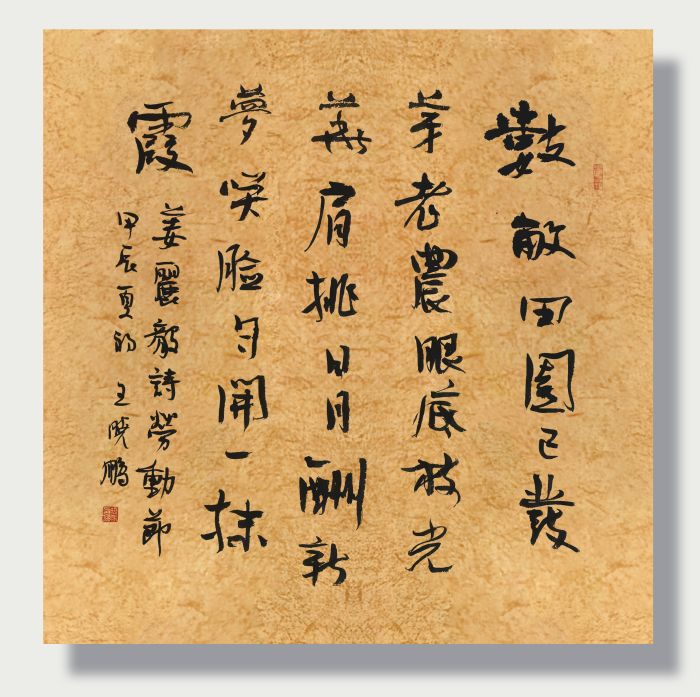 數畝田園已發
芽老農眼底放光
華肩挑日月酬新
夢咲脸勻開一抹
霞
姜麗毅詩勞動節
甲辰夏初 王晓鵬